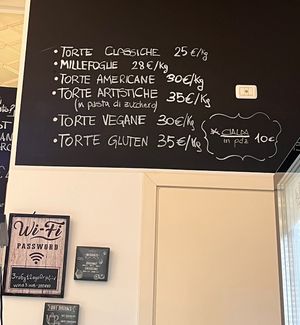 • TORTE CLASSICHE 25 €/kg
• MILLEFOGLIE 28 €/kg
• TORTE AMERICANE 30€/Kg
• TORTE ARTISTICHE 35€/Kg
(in pasta di zucchero)
• TORTE VEGANE 30€/Kg
• TORTE GLUTEN 35€/Kg
* CIALDA 10€
in pdz
Wi-Fi
PASSWORD